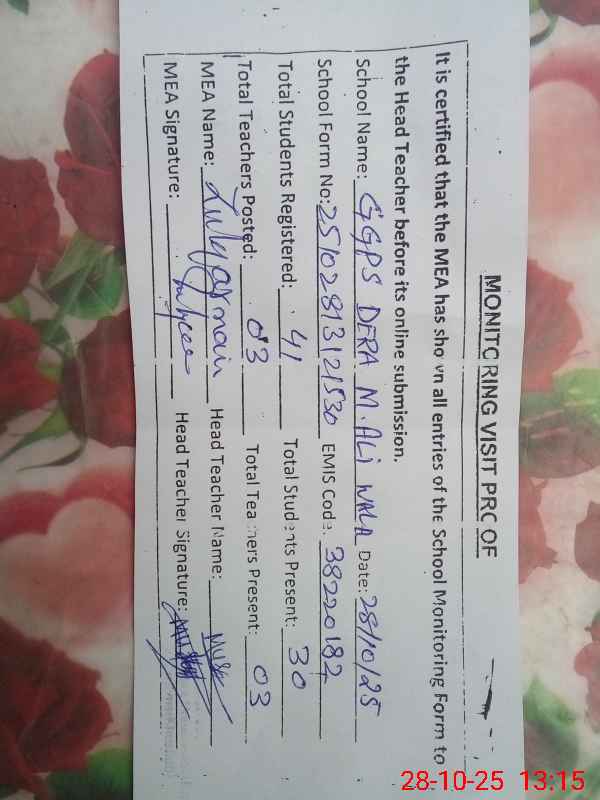 MONITORING VISIT PROOF
It is certified that the MEA has shown all entries of the School Monitoring Form to
the Head Teacher before its online submission.
School Name: GGPS DERA M.ALI WALA Date: 28/10/25
School Form No: 25102813121530 EMIS Code: 38220182
Total Students Registered: 41 Total Students Present: 30
Total Teachers Posted: 03 Total Teachers Present: 03
MEA Name: Zulqarnain Head Teacher Name:
MEA Signature: Head Teacher Signature:
28-10-25 13:15